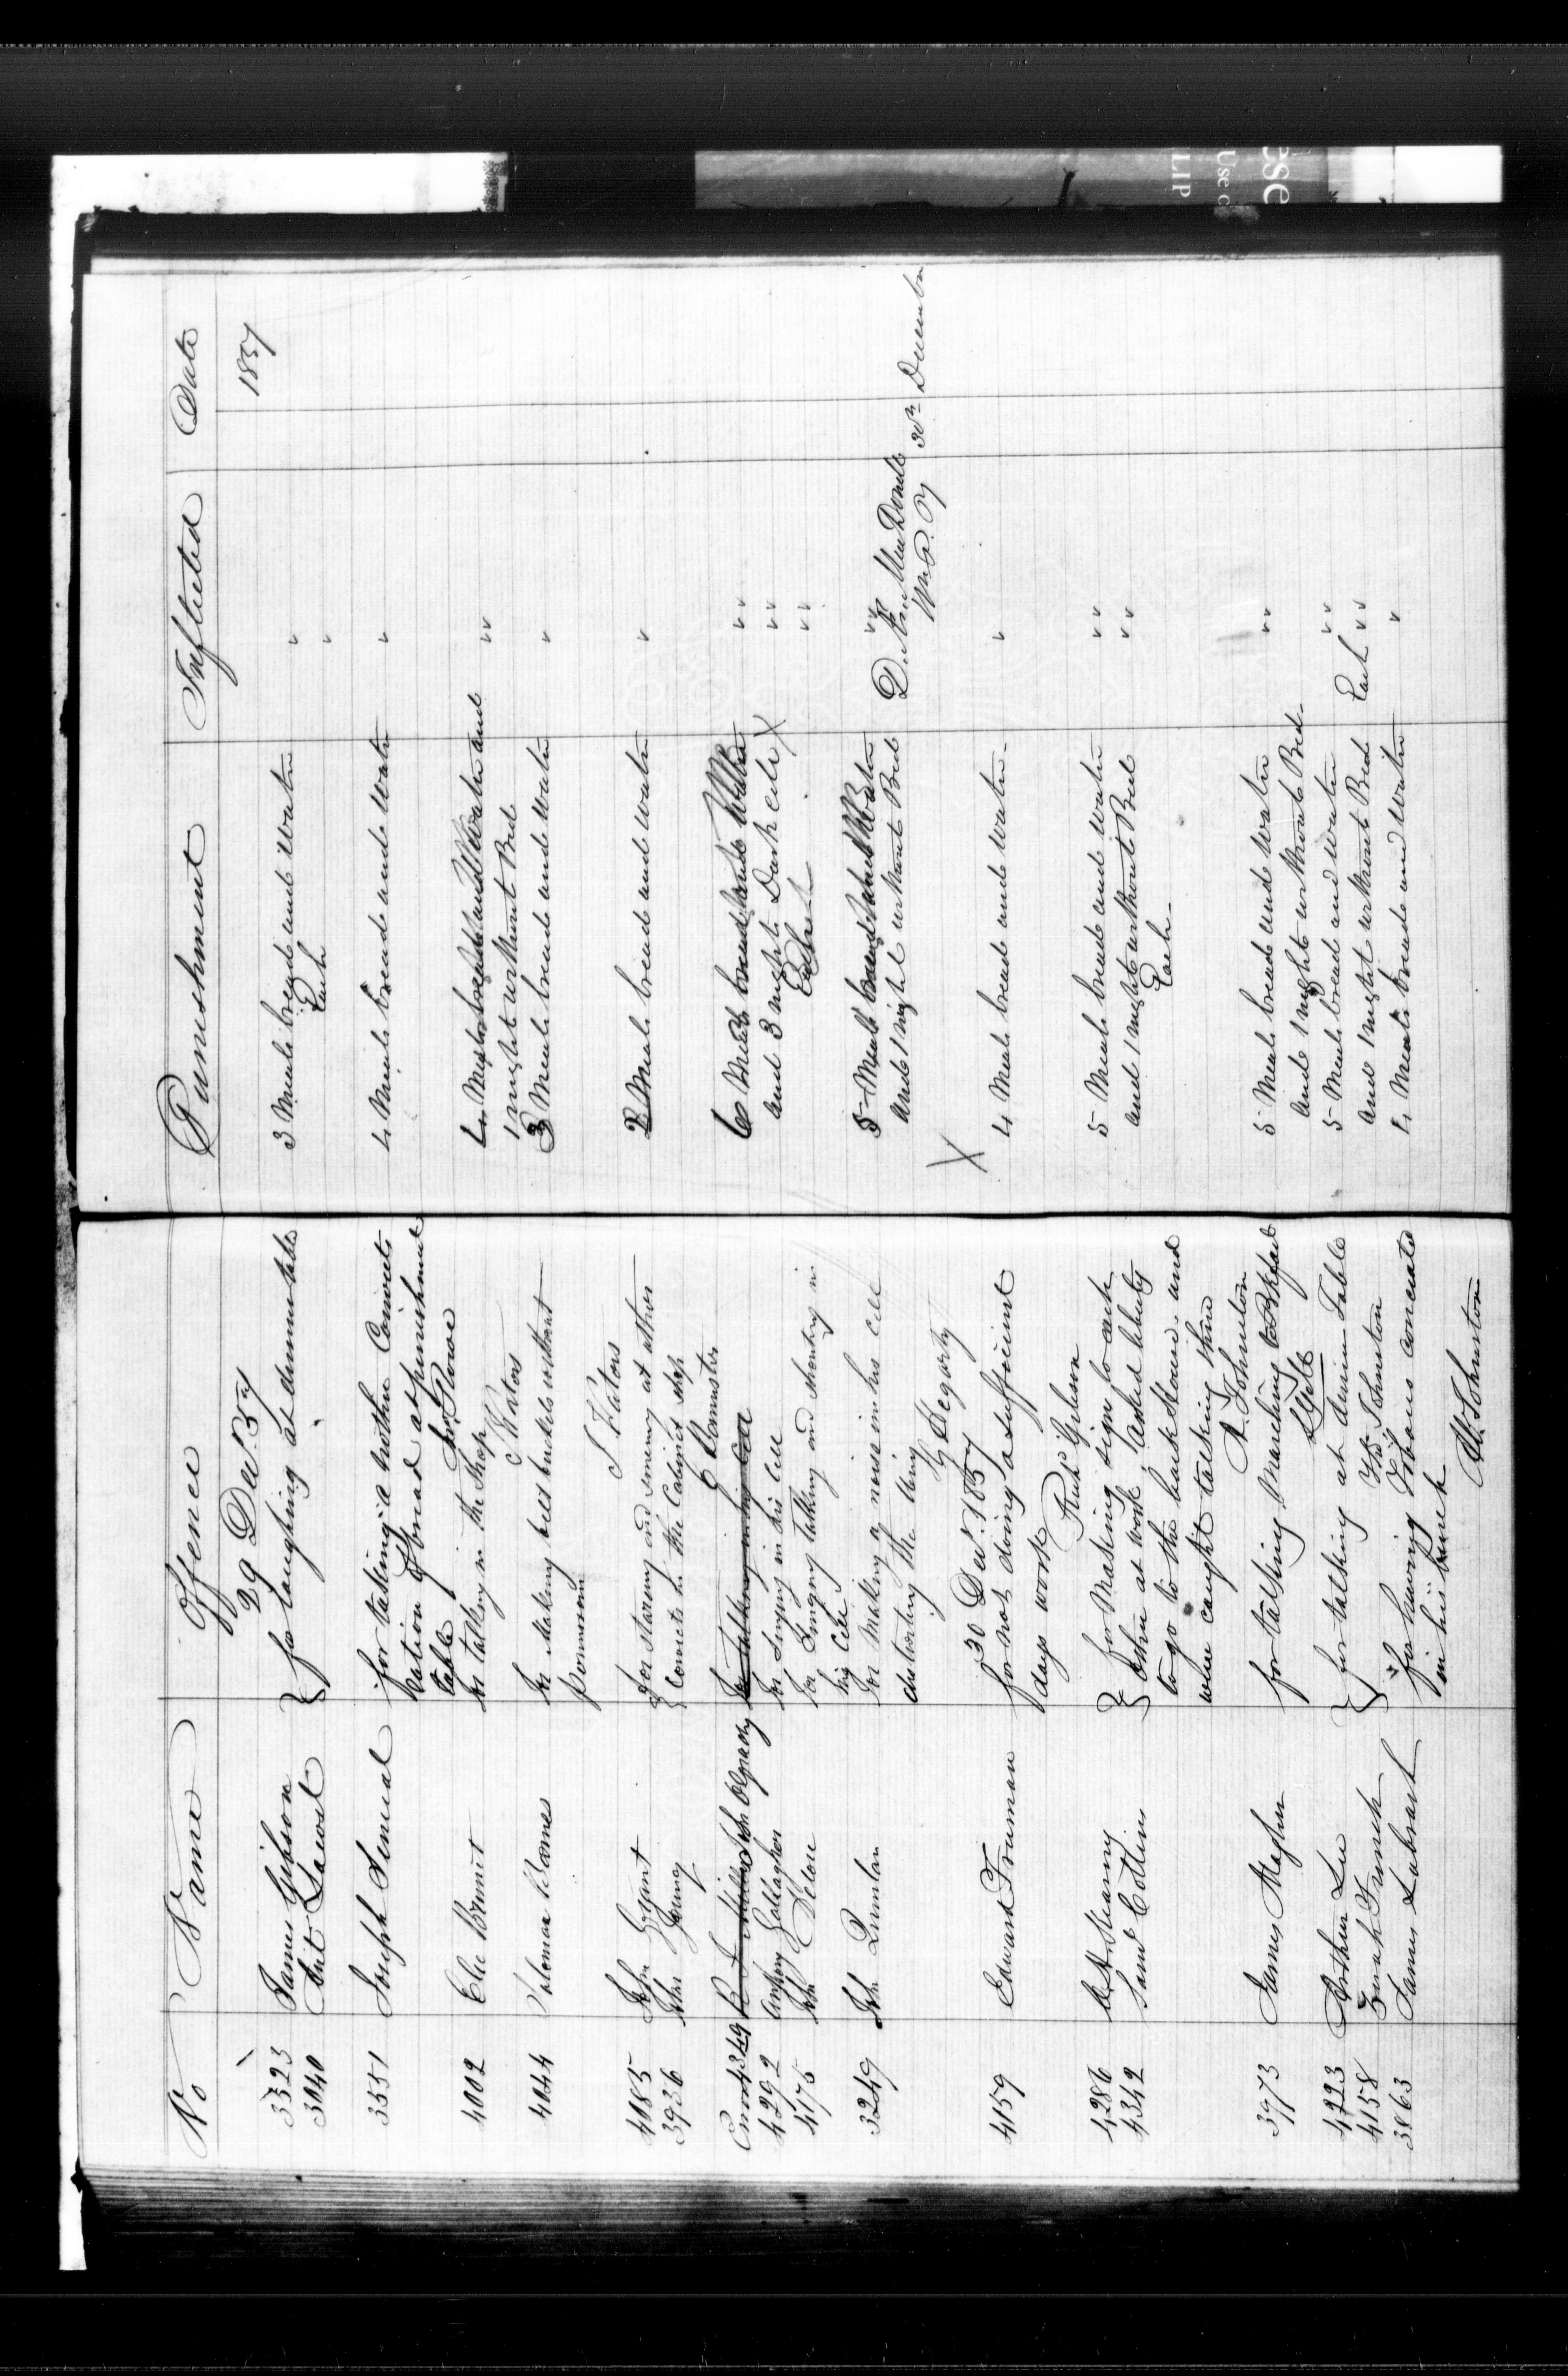 No Name Offence Punishment Inflicted Date
29 Decr. 57 1857
3323 James Gibson } for laughing at dinner table 3 Meals bread and Water "
3040 Ant Lawost Each "
3551 Joseph Senical for taking a nother Convicts 4 Meals bread and Water "
ration of bread at punishment
table Jno Rowe
4002 Elie Brunet for talking in the Shop 4 Meals bread and Water and " "
J Katos 1 night without Bed
4044 Soloman Barnes for Making beds buckets without 3 Meals bread and Water "
permission
J Katos
4085 John Grant } for staring and smiling at other 2 Meals bread and Water "
3936 John Young Convicts in the Cabinet Shop
C Bannister
Error 4349 for talking in his Cell 6 Meals bread and Water " "
4292 Anthony Gallagher for Singing in his Cell and 3 nights Dark Cell X " "
4175 John for Singing talking and shouting in Each " "
his Cell
3249 John Quinlan for Making a noise in his Cell 5 Meals bread and Water " "
disturbing the Wing and 1 night without Bed D. Æ. MacDonell
G Hegarty X W. P. Py 30th December
30 Decr. 1857
4159 Edward Truman for not doing a sufficient 4 Meals bread and Water "
days work Richd Gibson
4286 } for Making sign to each 5 Meals bread and Water " "
4342 Saml Collins other at work, asked liberty and 1 night without Bed " "
to go to the back House and Each
when caught talking there
A. Johnston
3973 James Magher for talking Marching to Bkfast 5 Meals bread and Water " "
and 1 night without Bed
4223 Arthur Lee } for talking at dinin Table 5 Meals bread and Water " "
4158 French Thos Johnston and 1 night without Bed Each " "
3863 James for having Beans conceald 4 Meals bread and Water "
in his bunk
W. Johnston
ese
Use c
LIP